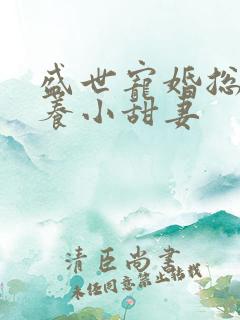 盛世宠婚总
养小甜妻
清臣尚书
未经同意禁止转载